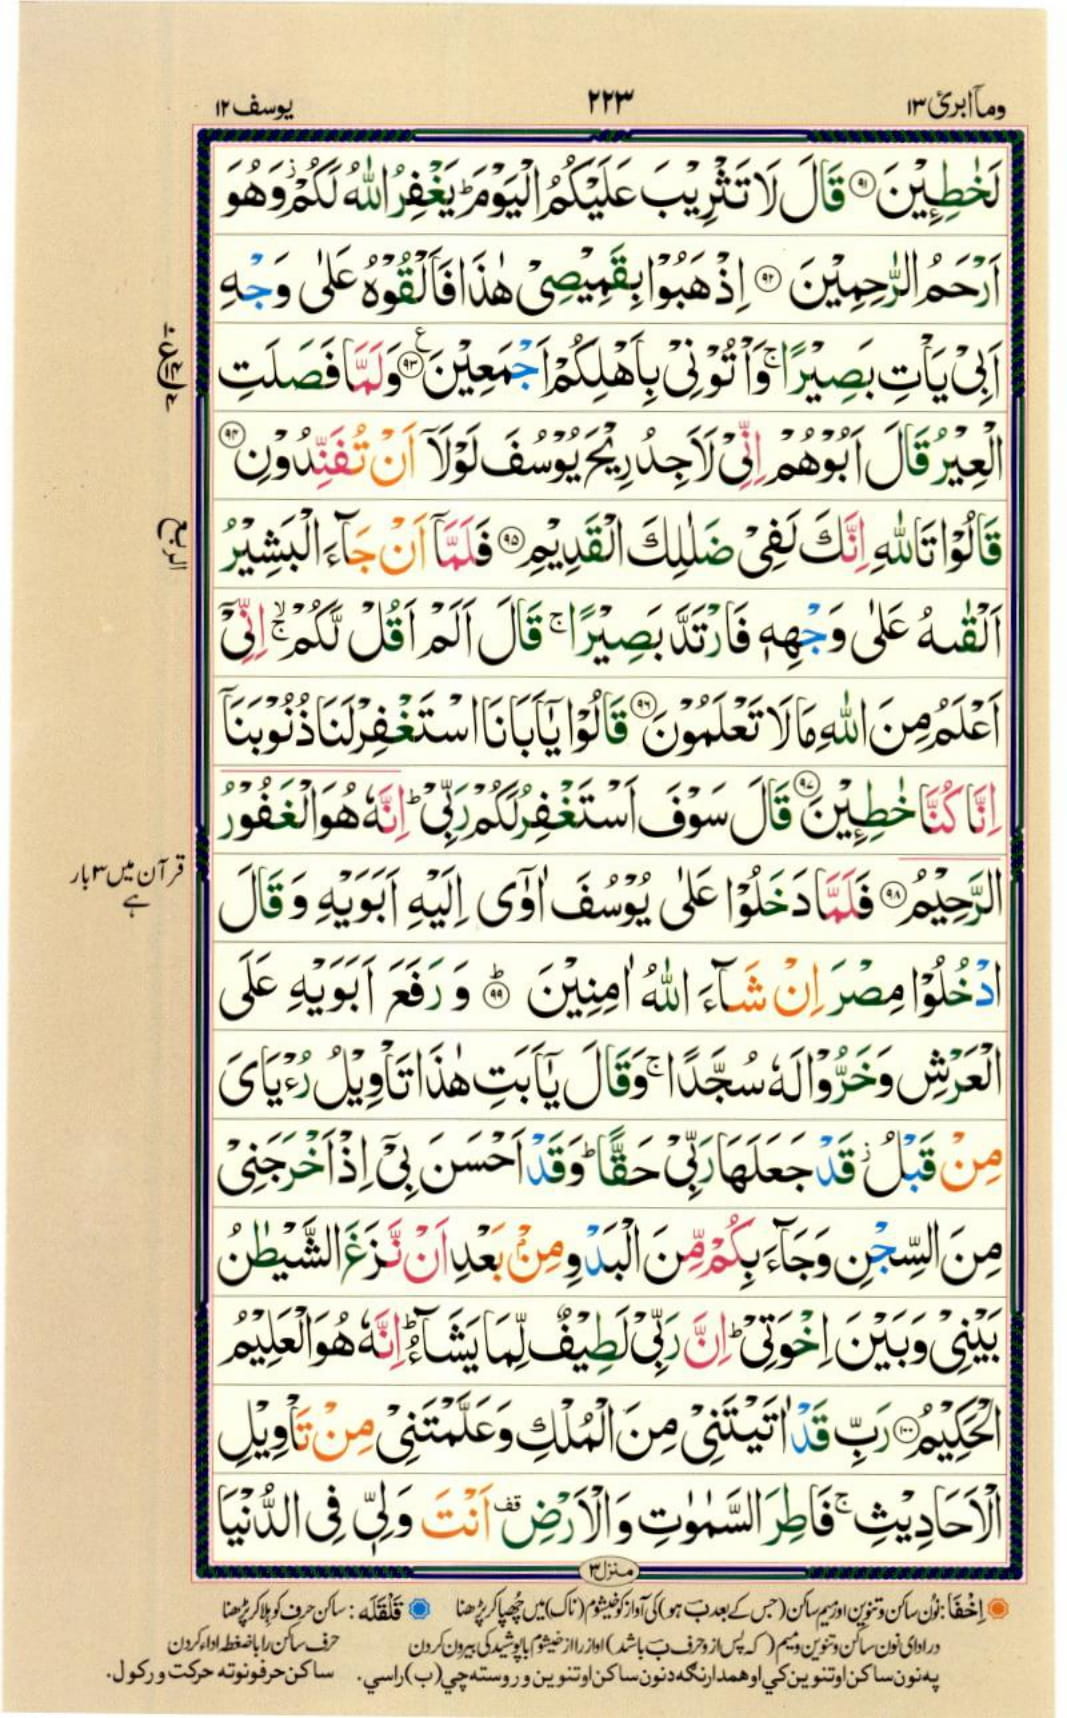 وماۤابرئ ١٣
٢٢٣
يوسف ١٢
لَخٰطِـِٕيْنَ ﴿٩١﴾ قَالَ لَا تَثْرِيْبَ عَلَيْكُمُ الْيَوْمَ ؕ يَغْفِرُ اللّٰهُ لَكُمْ ؗ وَهُوَ
اَرْحَمُ الرّٰحِمِيْنَ ﴿٩٢﴾ اِذْهَبُوْا بِقَمِيْصِيْ هٰذَا فَاَلْقُوْهُ عَلٰى وَجْهِ
اَبِيْ يَاْتِ بَصِيْرًا ۚ وَاْتُوْنِيْ بِاَهْلِكُمْ اَجْمَعِيْنَ ﴿٩٣﴾ ع وَلَمَّا فَصَلَتِ
الْعِيْرُ قَالَ اَبُوْهُمْ اِنِّيْ لَاَجِدُ رِيْحَ يُوْسُفَ لَوْلَاۤ اَنْ تُفَنِّدُوْنِ ﴿٩٤﴾
الربع
قَالُوْا تَاللّٰهِ اِنَّكَ لَفِيْ ضَلٰلِكَ الْقَدِيْمِ ﴿٩٥﴾ فَلَمَّاۤ اَنْ جَآءَ الْبَشِيْرُ
اَلْقٰىهُ عَلٰى وَجْهِهٖ فَارْتَدَّ بَصِيْرًا ۚ قَالَ اَلَمْ اَقُلْ لَّكُمْ ۙۚ اِنِّيْۤ
اَعْلَمُ مِنَ اللّٰهِ مَا لَا تَعْلَمُوْنَ ﴿٩٦﴾ قَالُوْا يٰۤاَبَانَا اسْتَغْفِرْ لَنَا ذُنُوْبَنَاۤ
اِنَّا كُنَّا خٰطِـِٕيْنَ ﴿٩٧﴾ قَالَ سَوْفَ اَسْتَغْفِرُ لَكُمْ رَبِّيْ ؕ اِنَّهٗ هُوَ الْغَفُوْرُ
قرآن میں ٣ بار
ہے
الرَّحِيْمُ ﴿٩٨﴾ فَلَمَّا دَخَلُوْا عَلٰى يُوْسُفَ اٰوٰۤى اِلَيْهِ اَبَوَيْهِ وَقَالَ
ادْخُلُوْا مِصْرَ اِنْ شَآءَ اللّٰهُ اٰمِنِيْنَ ﴿٩٩﴾ ؕ وَرَفَعَ اَبَوَيْهِ عَلَى
الْعَرْشِ وَخَرُّوْا لَهٗ سُجَّدًا ۚ وَقَالَ يٰۤاَبَتِ هٰذَا تَاْوِيْلُ رُءْيَايَ
مِنْ قَبْلُ ؗ قَدْ جَعَلَهَا رَبِّيْ حَقًّا ؕ وَقَدْ اَحْسَنَ بِيْۤ اِذْ اَخْرَجَنِيْ
مِنَ السِّجْنِ وَجَآءَ بِكُمْ مِّنَ الْبَدْوِ مِنْۢ بَعْدِ اَنْ نَّزَغَ الشَّيْطٰنُ
بَيْنِيْ وَبَيْنَ اِخْوَتِيْ ؕ اِنَّ رَبِّيْ لَطِيْفٌ لِّمَا يَشَآءُ ؕ اِنَّهٗ هُوَ الْعَلِيْمُ
الْحَكِيْمُ ﴿١٠٠﴾ رَبِّ قَدْ اٰتَيْتَنِيْ مِنَ الْمُلْكِ وَعَلَّمْتَنِيْ مِنْ تَاْوِيْلِ
الْاَحَادِيْثِ ۚ فَاطِرَ السَّمٰوٰتِ وَالْاَرْضِ قف اَنْتَ وَلِيّٖ فِي الدُّنْيَا
منزل ٣
اِخْفَا: نُون ساکن و تنوین اور میم ساکن (جس کے بعد ب ہو) کی آواز کو خیشوم (ناک) میں چُھپا کر پڑھنا قَلْقَلَه: ساکن حرف کو ہِلا کر پڑھنا
در ادای نون ساکن و تنوین و میم (که پس از و حرف ب باشد) اواز را از خیشوم با پوشیدگی بیرون کردن حرف ساکن را با ضغطه اداء کردن
په نون ساکن او تنوین کي او همدارنګه د نون ساکن او تنوین و روسته چي (ب) راسي. ساکن حرفونو ته حرکت ورکول.